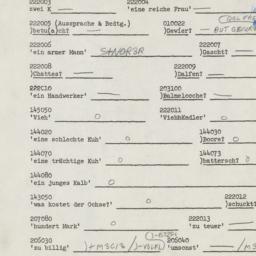 222003 222004
zwei K 'eine reiche Frau'
222005 (Aussprache & Bedtg.) 010022
)betu(a)cht? )Gewier?
222006 222007
'ein armer Mann' )Gascht?
222008 222009
)Chattes? )Dalfen?
222010 203100
'ein Handwerker' )Balmelocche?
145050 222011
'Vieh' O 'Viehhändler' O
144020 144030
'eine schlechte Kuh' O )Boore? O
144070 144073
'eine trächtige Kuh' O )battersch? O
144080
'ein junges Kalb' O
143050 222012
'was kostet der Ochse?' O )schuckt?
207080 222013
'hundert Mark' O 'zu teuer'
205030 205040
'zu billig' 'umsonst'